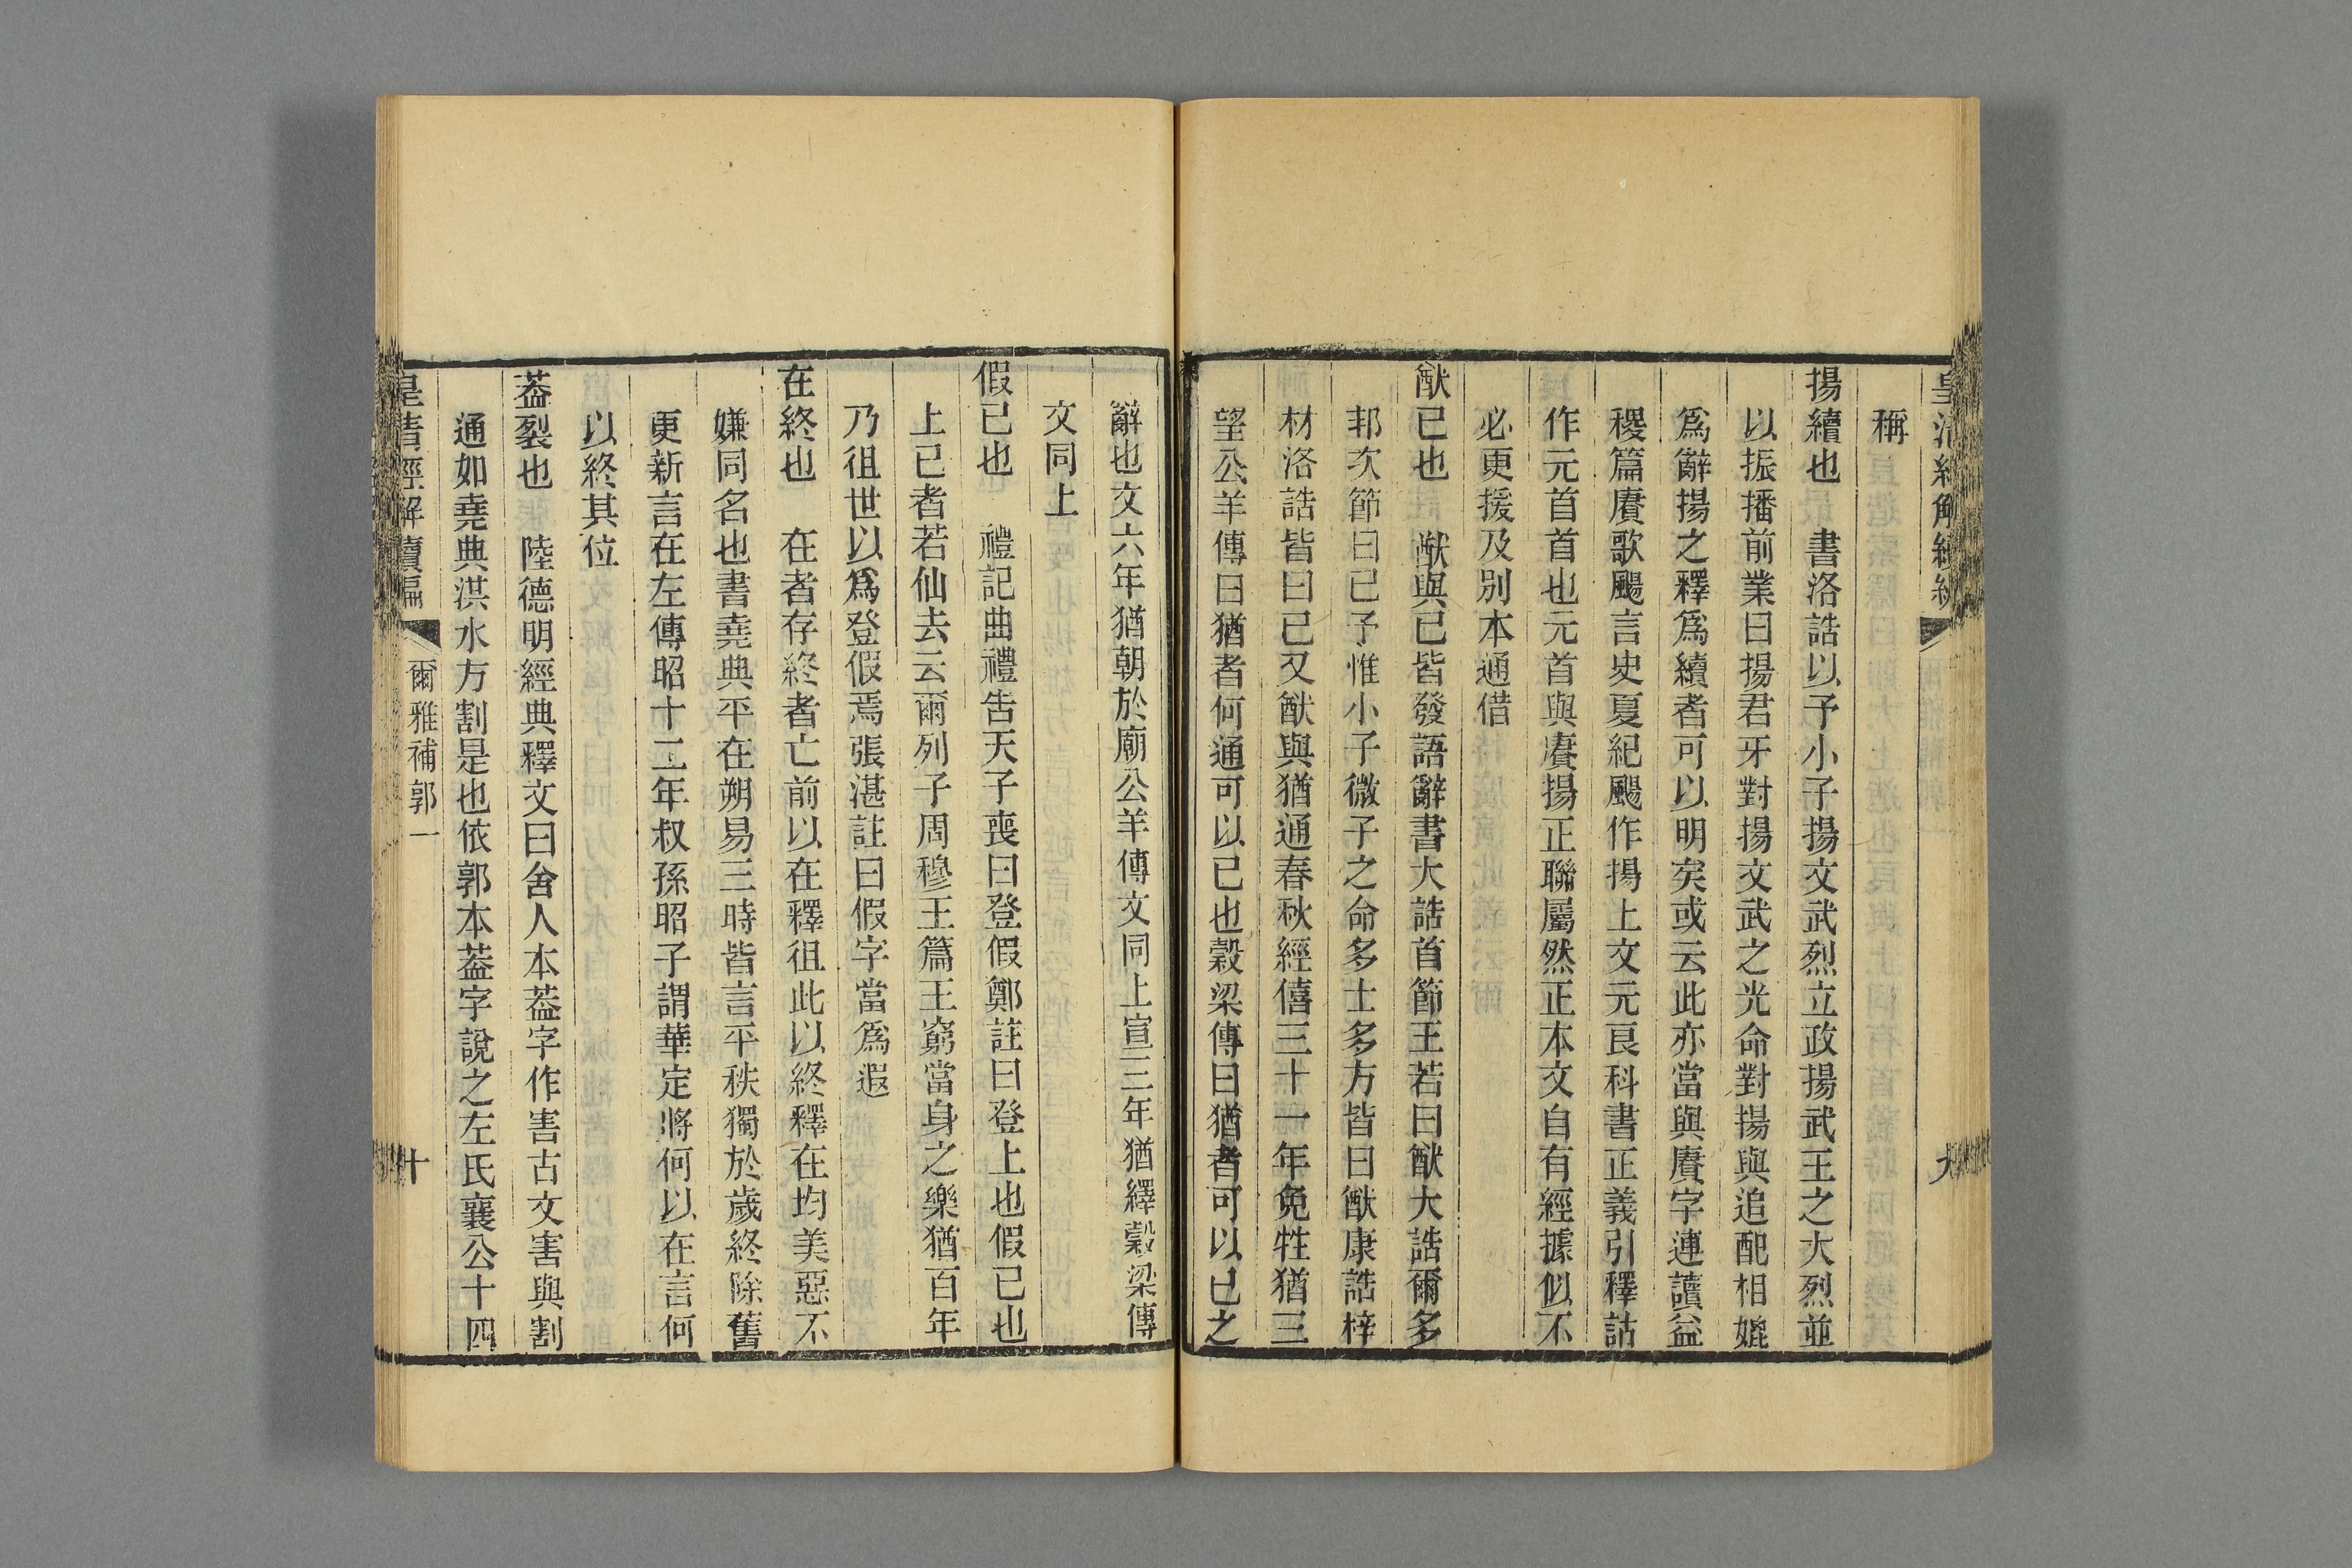 稱
揚續也　書洛誥以予小子揚文武烈立政揚武王之大烈並
以振播前業曰揚君牙對揚文武之光命對揚與追配相媲
爲辭揚之釋爲續者可以明矣或云此亦當與賡字連讀益
稷篇賡歌颺言史夏紀颺作揚上文元良科書正義引釋詁
作元首首也元首與賡揚正聯屬然正本文自有經據似不
必更援及別本通借
猷已也　猷與已皆發語辭書大誥首節王若曰猷大誥爾多
邦次節曰已予惟小子微子之命多士多方皆曰猷康誥梓
材洛誥皆曰已又猷與猶通春秋經僖三十一年免牲猶三
望公羊傳曰猶者何通可以已也穀梁傳曰猶者可以已之
辭也文六年猶朝於廟公羊傳文同上宣三年猶繹穀梁傳
文同上
假已也　禮記曲禮告天子喪曰登假鄭註曰登上也假已也
上已者若仙去云爾列子周穆王篇王窮當身之樂猶百年
乃徂世以爲登假焉張湛註曰假字當爲遐
在終也　在者存終者亡前以在釋徂此以終釋在均美惡不
嫌同名也書堯典平在朔易三時皆言平秩獨於歲終除舊
更新言在左傳昭十二年叔孫昭子謂華定將何以在言何
以終其位
葢裂也　陸德明經典釋文曰舍人本葢字作害古文害與割
通如堯典洪水方割是也依郭本葢字說之左氏襄公十四
皇清經解續編
爾雅補郭一
十